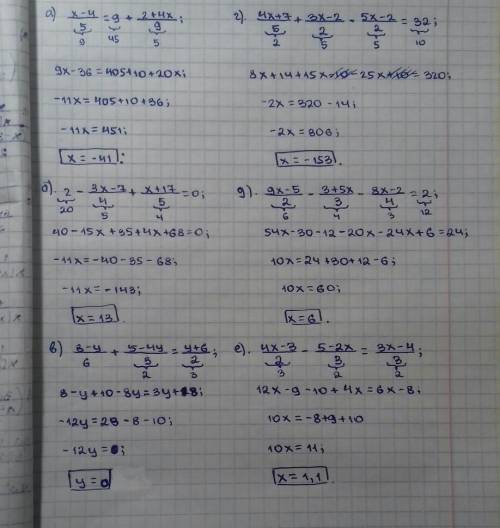 а) (x-4)/5 = 9 + (2+4x)/9;
9 45 5
9x-36=405+10+20x;
-11x=405+10+36;
-11x=451;
x=-41.
б). 2 - (3x-7)/4 + (x+17)/5 = 0;
20 5 4
40-15x+35+4x+68=0;
-11x=-40-35-68;
-11x=-143;
x=13.
в) (8-y)/6 + (5-4y)/3 = (y+6)/2;
2 3
8-y+10-8y=3y+18;
-12y=28-8-10;
-12y=0;
y=0
г). (4x+7)/5 + (3x-2)/2 - (5x-2)/2 = 32;
2 5 5 10
8x+14+15x-10-25x+10=320;
-2x=320-14;
-2x=306;
x=-153.
д). (9x-5)/2 - (3+5x)/3 - (8x-2)/4 = 2;
6 4 3 12
54x-30-12-20x-24x+6=24;
10x=24+30+12-6;
10x=60;
x=6.
е). (4x-3)/2 - (5-2x)/3 = (3x-4)/3;
3 2 2
12x-9-10+4x=6x-8;
10x=-8+9+10
10x=11;
x=1,1.